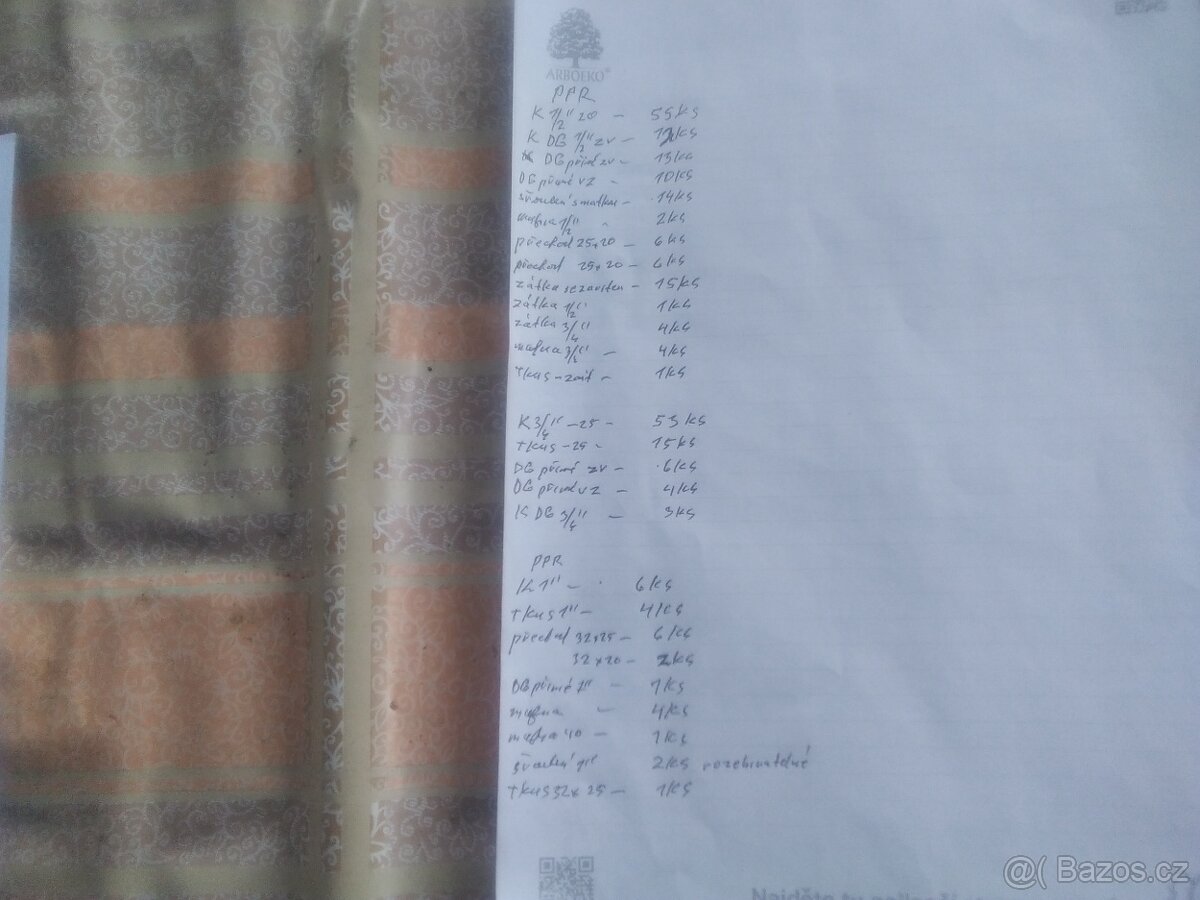 ARBOEKO®
PPR
K 1/2" 20 - 55ks
K DG 1/2" zv - ks
K DG přímé zv - 13ks
DG přímé vz - 10ks
s matkou - 14ks
mufna 1/2" - 2ks
přechod 25x20 - 6ks
přechod 25x20 - 6ks
zátka se závitem - 15ks
zátka 1/2" 1ks
zátka 3/4" 4ks
mufna 3/4" - 4ks
Tkus - 1ks
K 3/4" - 25 - 53ks
Tkus - 25 - 15ks
DG přímé zv - 6ks
DG přímé vz - 4ks
K DG 3/4" - 3ks
PPR
K 1" - 6ks
Tkus 1" - 4ks
přechod 32x25 - 6ks
32x20 - 2ks
DG přímé 1" - 1ks
mufna - 4ks
mufna 40 - 1ks
2ks rozebiratelné
Tkus 32x25 - 1ks
@( Bazos.cz